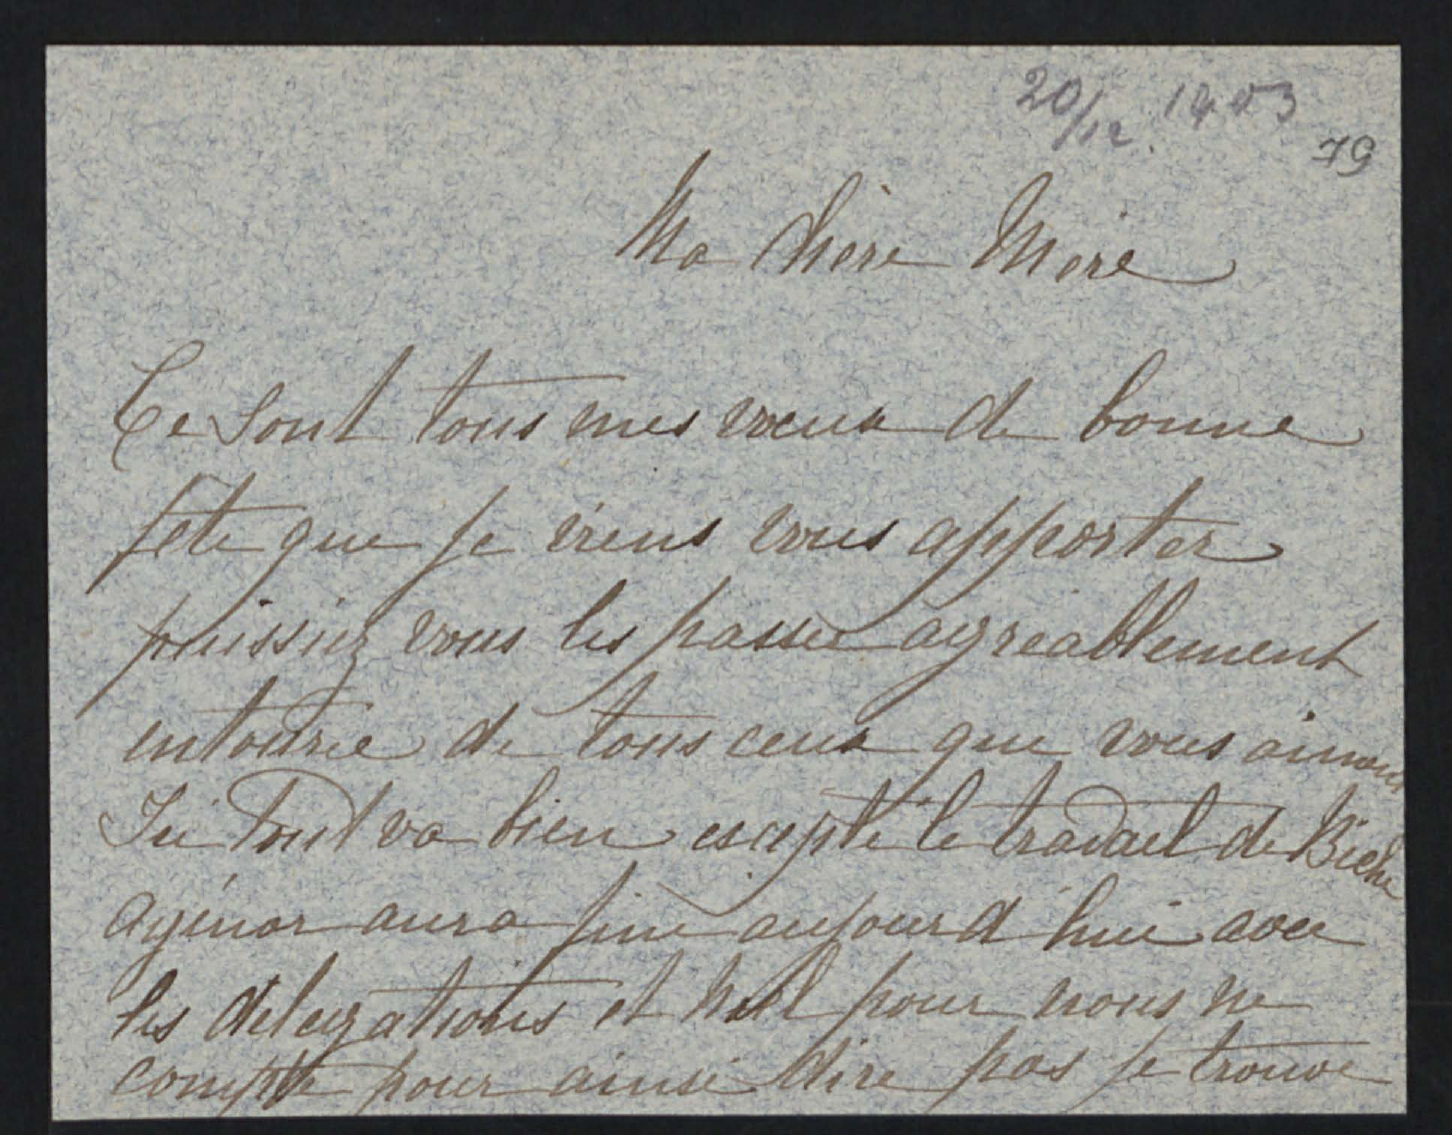 20/12. 1903
79
Ma chère Mère
Ce sont tous mes voeux de bonne
fête que je viens vous apporter
puissiez vous les passer agréablement
entourée de tous ceux que vous aimez
Ici tout va bien excepté le travail de Biche
agénor aura fini aujourd'hui avec
les délégations et Noël pour nous ne
compte pour ainsi dire pas je trouve